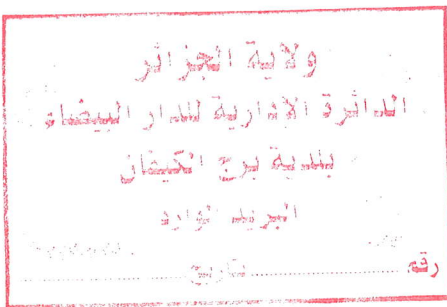 ولاية الجزائر
الدائرة الإدارية للدار البيضاء
بلدية برج الكيفان
البريد الوارد
رقم ............ تاريخ ............